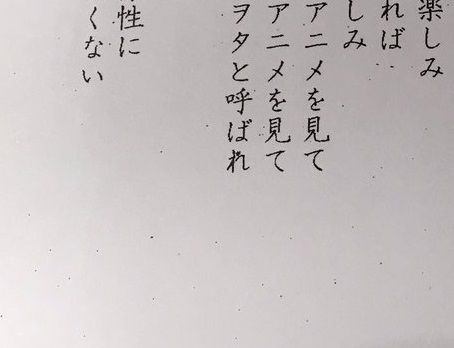 楽しみ
れば
しみ
アニメを見て
アニメを見て
ヲタと呼ばれ
性に
くない